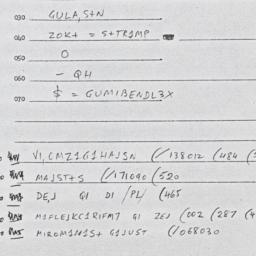 030 GULA,S+N
040 ZOK+ = S+TR1MP
050 O
060 – QH
070 $ = GUMIBENDL3X
VI,CMZ1G1HAJSN (/138012 (484 (
MAJST+S (/171090 (520
DE,J G1 D1 /PL/ (465
M1FLEJKC1R1FM7 G1 ZEJ (002 (287 (4
M1ROM1N1S+ G1JUST (/068030